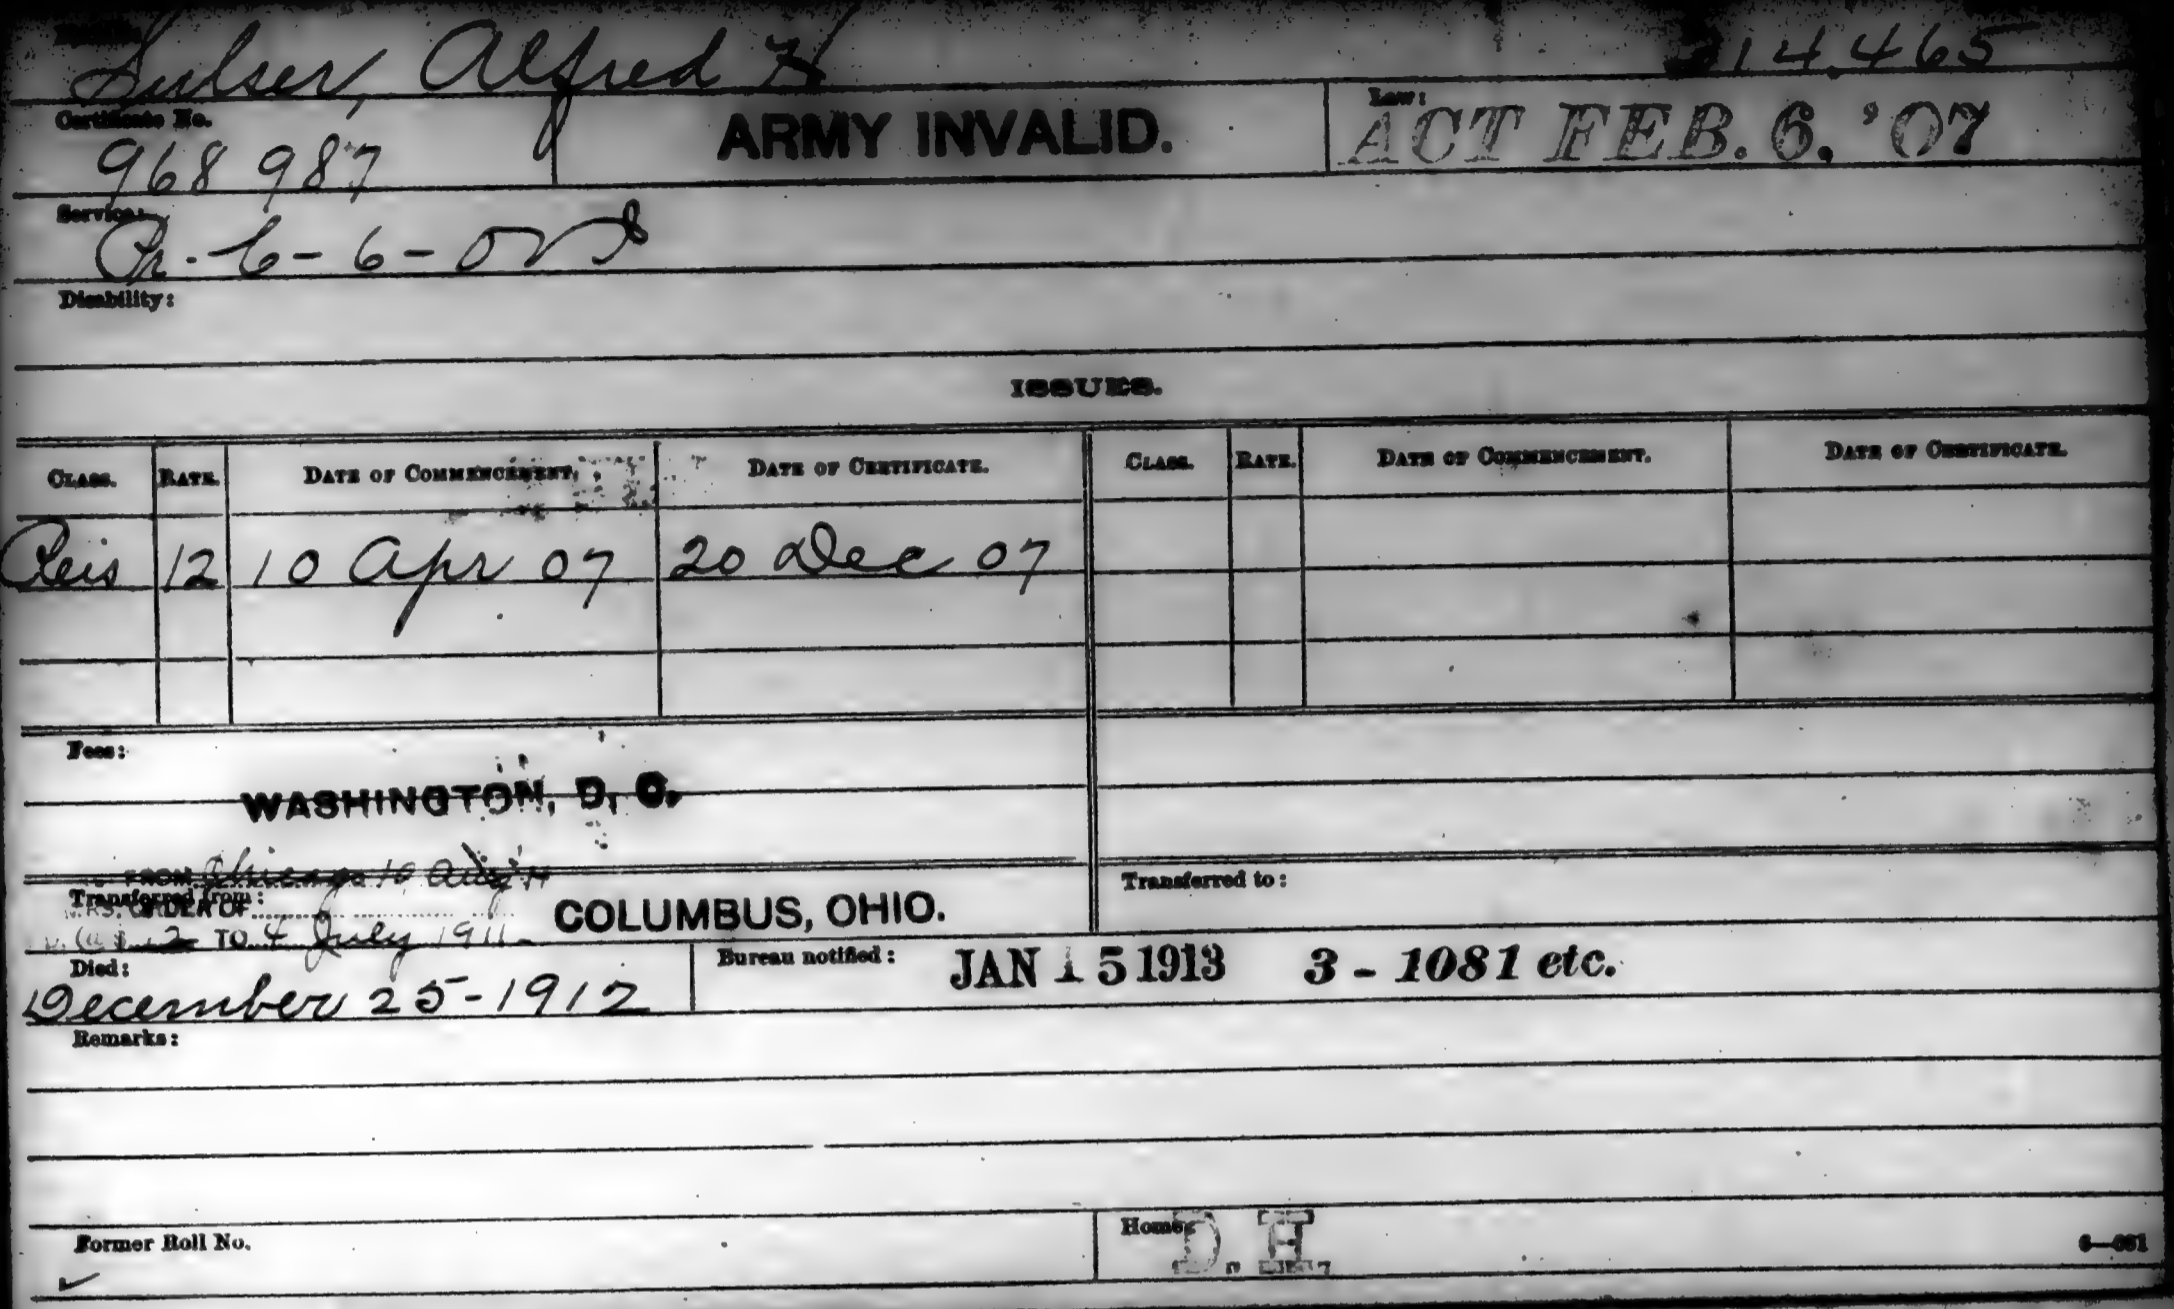 Sulser, Alfred H 314,465
Certificate No.
968 987
ARMY INVALID.
Law:
ACT FEB. 6, '07
Service:
Pr. C - 6 - O V S
Disability:
ISSUES.
CLASS. RATE. DATE OF COMMENCEMENT. DATE OF CERTIFICATE. CLASS. RATE. DATE OF COMMENCEMENT. DATE OF CERTIFICATE.
Reis 12 10 Apr 07 20 Dec 07
Fees:
WASHINGTON, D. C.
FROM Chicago 10 Aug
Transferred from:
ORDER OF
COLUMBUS, OHIO.
TO 4 July 1911
Transferred to:
Died:
December 25-1912
Bureau notified:
JAN 15 1913 3 - 1081 etc.
Remarks:
Former Roll No.
Home:
D. H.